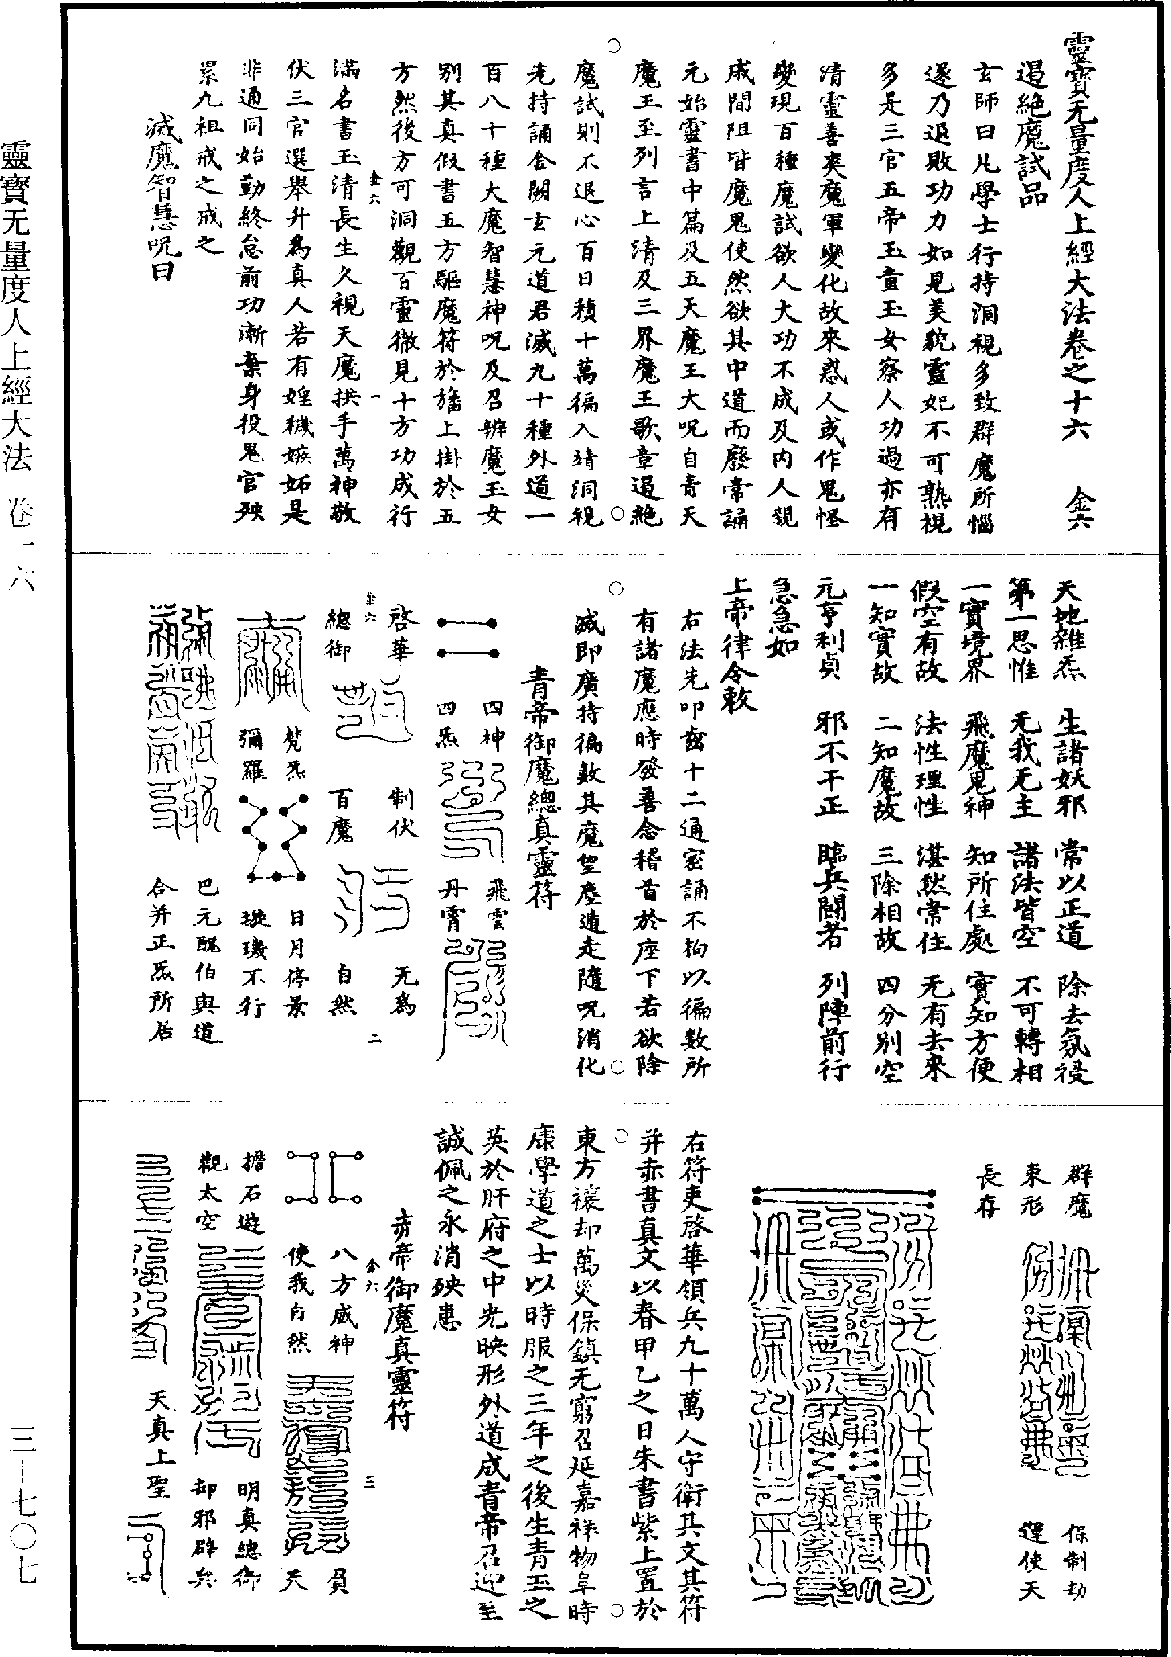 靈寶无量度人上經大法卷之十六　金六
遏絕魔試品
玄師曰凡學士行持洞視多致群魔所惱
遂乃退敗功力如見美貌靈妃不可熟視
多是三官五帝玉童玉女察人功過亦有
清靈善爽魔軍變化故來惑人或作鬼怪
變現百種魔試欲人大功不成及內人覬
戚間阻皆魔鬼使然欲其中道而廢常誦
元始靈書中篇及五天魔王大呪自青天
魔王至列言上清及三界魔王歌章遏絕
魔試則不退心百日積十萬徧入靖洞視
先持誦金闕玄元道君滅九十種外道一
百八十種大魔智慧神呪及召辨魔玉女
別其真假書五方驅魔符於旛上掛於五
方然後方可洞觀百靈徹見十方功成行
金六　一
滿名書玉清長生久視天魔拱手萬神敬
伏三官選舉升為真人若有婬穢嫉妬是
非通同始勤終怠前功漸棄身役鬼官殃
累九祖戒之戒之
滅魔智慧呪曰
天地雜炁　生諸妖邪　常以正道　除去氛祲
第一思惟　无我无主　諸法皆空　不可轉相
一實境界　飛魔鬼神　知所住處　實知方便
假空有故　法性理性　湛然常住　无有去來
一知實故　二知魔故　三除相故　四分別空
元亨利貞　邪不干正　臨兵鬪者　列陣前行
急急如
上帝律令敕
右法先叩齒十二通密誦不拘以徧數所
有諸魔應時發善念稽首於座下若欲除
滅即廣持徧數其魔望塵遁走隨呪消化
青帝御魔總真靈符
四神　飛雲
四炁　丹霄
啓華　制伏　无為
總御　百魔　自然
金六　二
梵炁　日月停景
彌羅　璇璣不行
巴元醜伯與道
合并正炁所居
群魔　保制劫
束形　運使天
長存
右符吏啓華領兵九十萬人守衛其文其符
并赤書真文以春甲乙之日朱書紫上置於
東方禳却萬災保鎮无窮召延嘉祥物阜時
康學道之士以時服之三年之後生青玉之
英於肝府之中光映形外道成青帝召迎至
誠佩之永消殃患
赤帝御魔真靈符
金六　三
八方威神　員
使我自然　天
擔石遊　明真總御
觀太空　却邪辟兵
天真上聖
靈寶无量度人上經大法　卷一六
三—七〇七